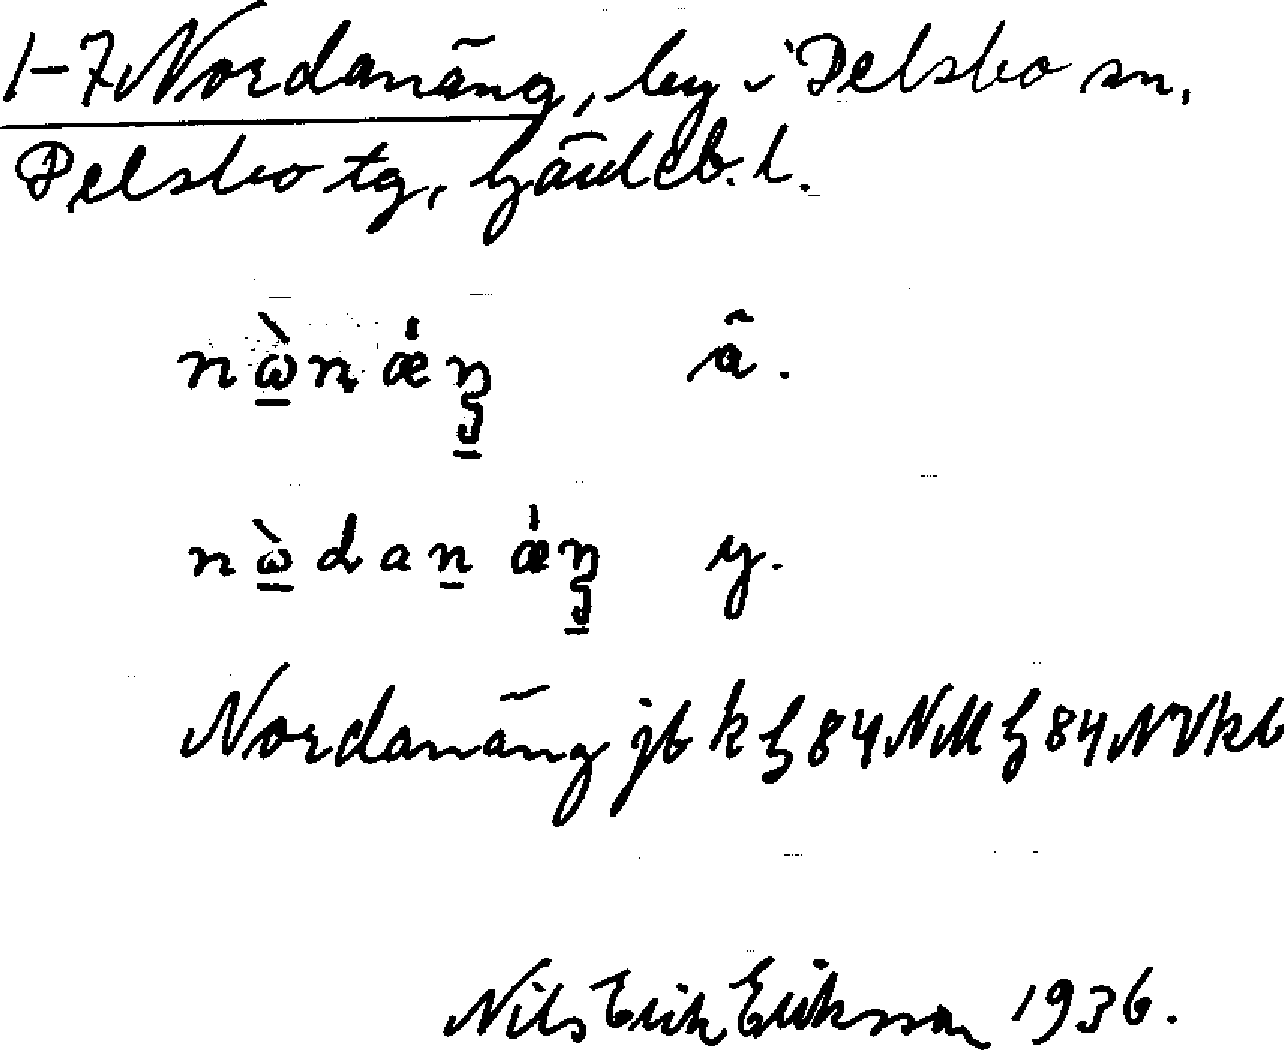 1-7 Nordanäng, by i Delsbo sn,
Delsbo tg, Gävleb. l.
nὼ̲n ǽŋ̲ ä.
nὼ̲dan̲ ǽŋ̲ y.
Nordanäng jb k h 84 NM h 84 NV kb
Nils Erik Eriksson 1936.